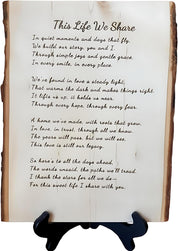 This Life We Share
In quiet moments and days that fly,
We build our story, you and I.
Through simple joys and gentle grace,
In every smile, in every place.
We've found in love a steady light,
That warms the dark and makes things right.
It lifts us up, it holds us near,
Through every hope, through every fear.
A home we've made, with roots that grow,
In love, in trust, through all we know.
The years will pass, but we will see,
This love is still our legacy.
So here's to all the days ahead,
The words unsaid, the paths we'll tread.
I thank the stars for all we do—
For this sweet life I share with you.